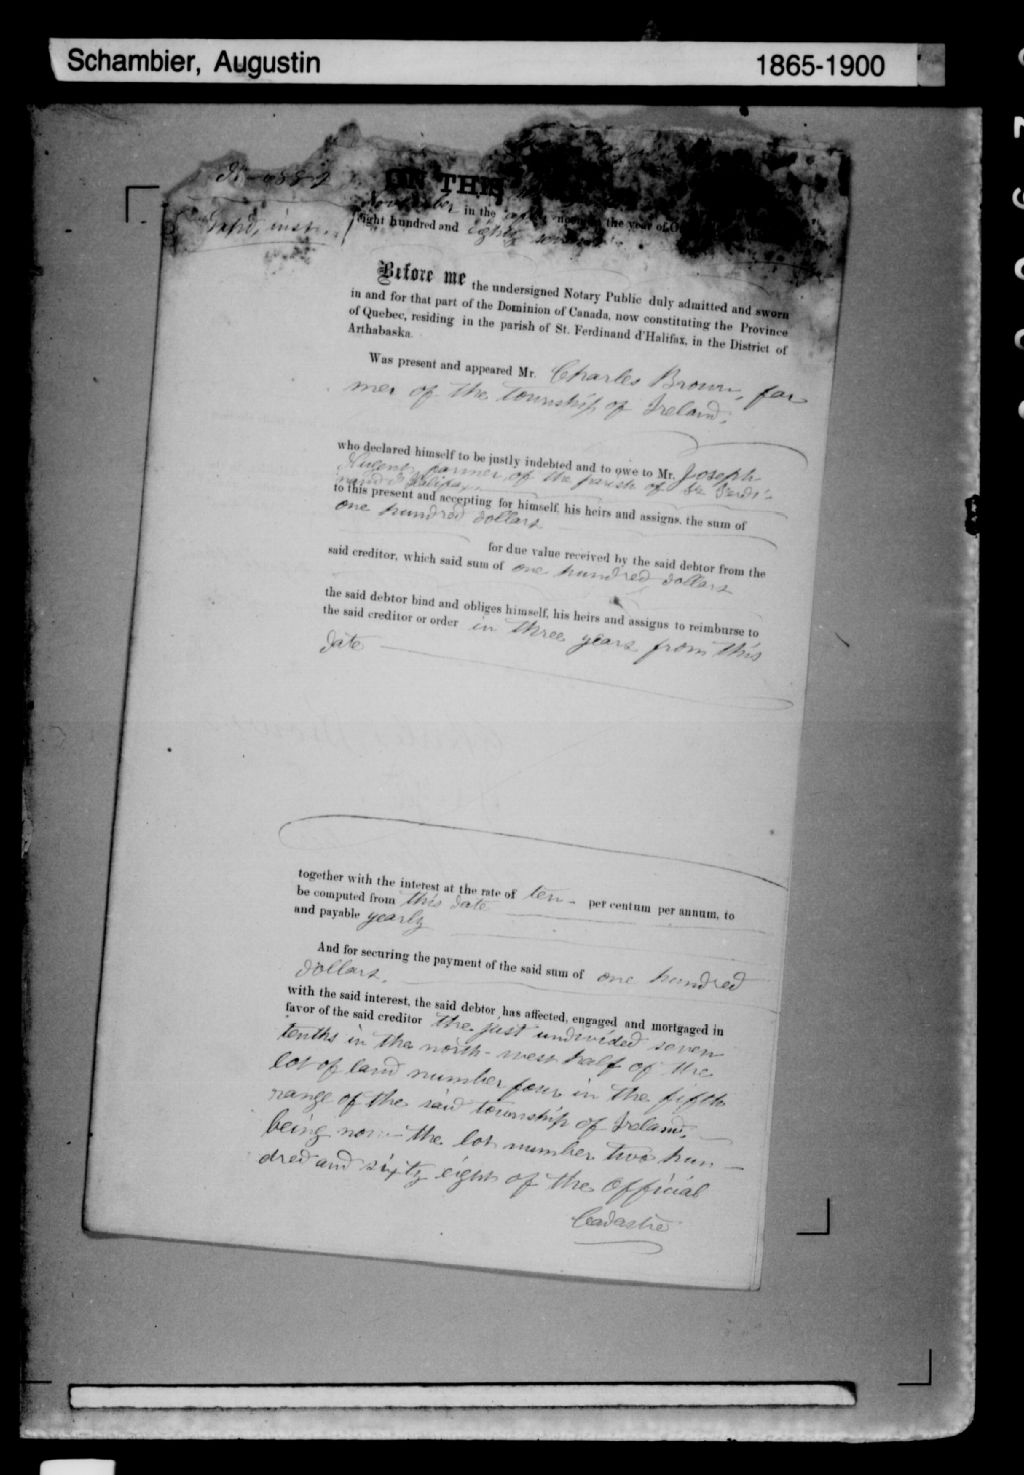 Schambier, Augustin 1865-1900
ON THIS
November in the after-noon in the year of O
eight hundred and eighty seven
Before me the undersigned Notary Public duly admitted and sworn
in and for that part of the Dominion of Canada, now constituting the Province
of Quebec, residing in the parish of St. Ferdinand d'Halifax, in the District of
Arthabaska.
Was present and appeared Mr. Charles Brown, far
mer of the township of Ireland,
who declared himself to be justly indebted and to owe to Mr. Joseph
farmer, of the parish of St Ferdi-
nand d'Halifax,
to this present and accepting for himself, his heirs and assigns, the sum of
one hundred dollars
for due value received by the said debtor from the
said creditor, which said sum of one hundred dollars
the said debtor bind and obliges himself, his heirs and assigns to reimburse to
the said creditor or order in three years from this
date
together with the interest at the rate of ten - per centum per annum, to
be computed from this date
and payable yearly
And for securing the payment of the said sum of one hundred
dollars,
with the said interest, the said debtor has affected, engaged and mortgaged in
favor of the said creditor the just undivided seven
tenths in the north-west half of the
lot of land number four in the fifth
range of the said township of Ireland,
being now the lot number two hun-
dred and sixty eight of the Official
Cadastre